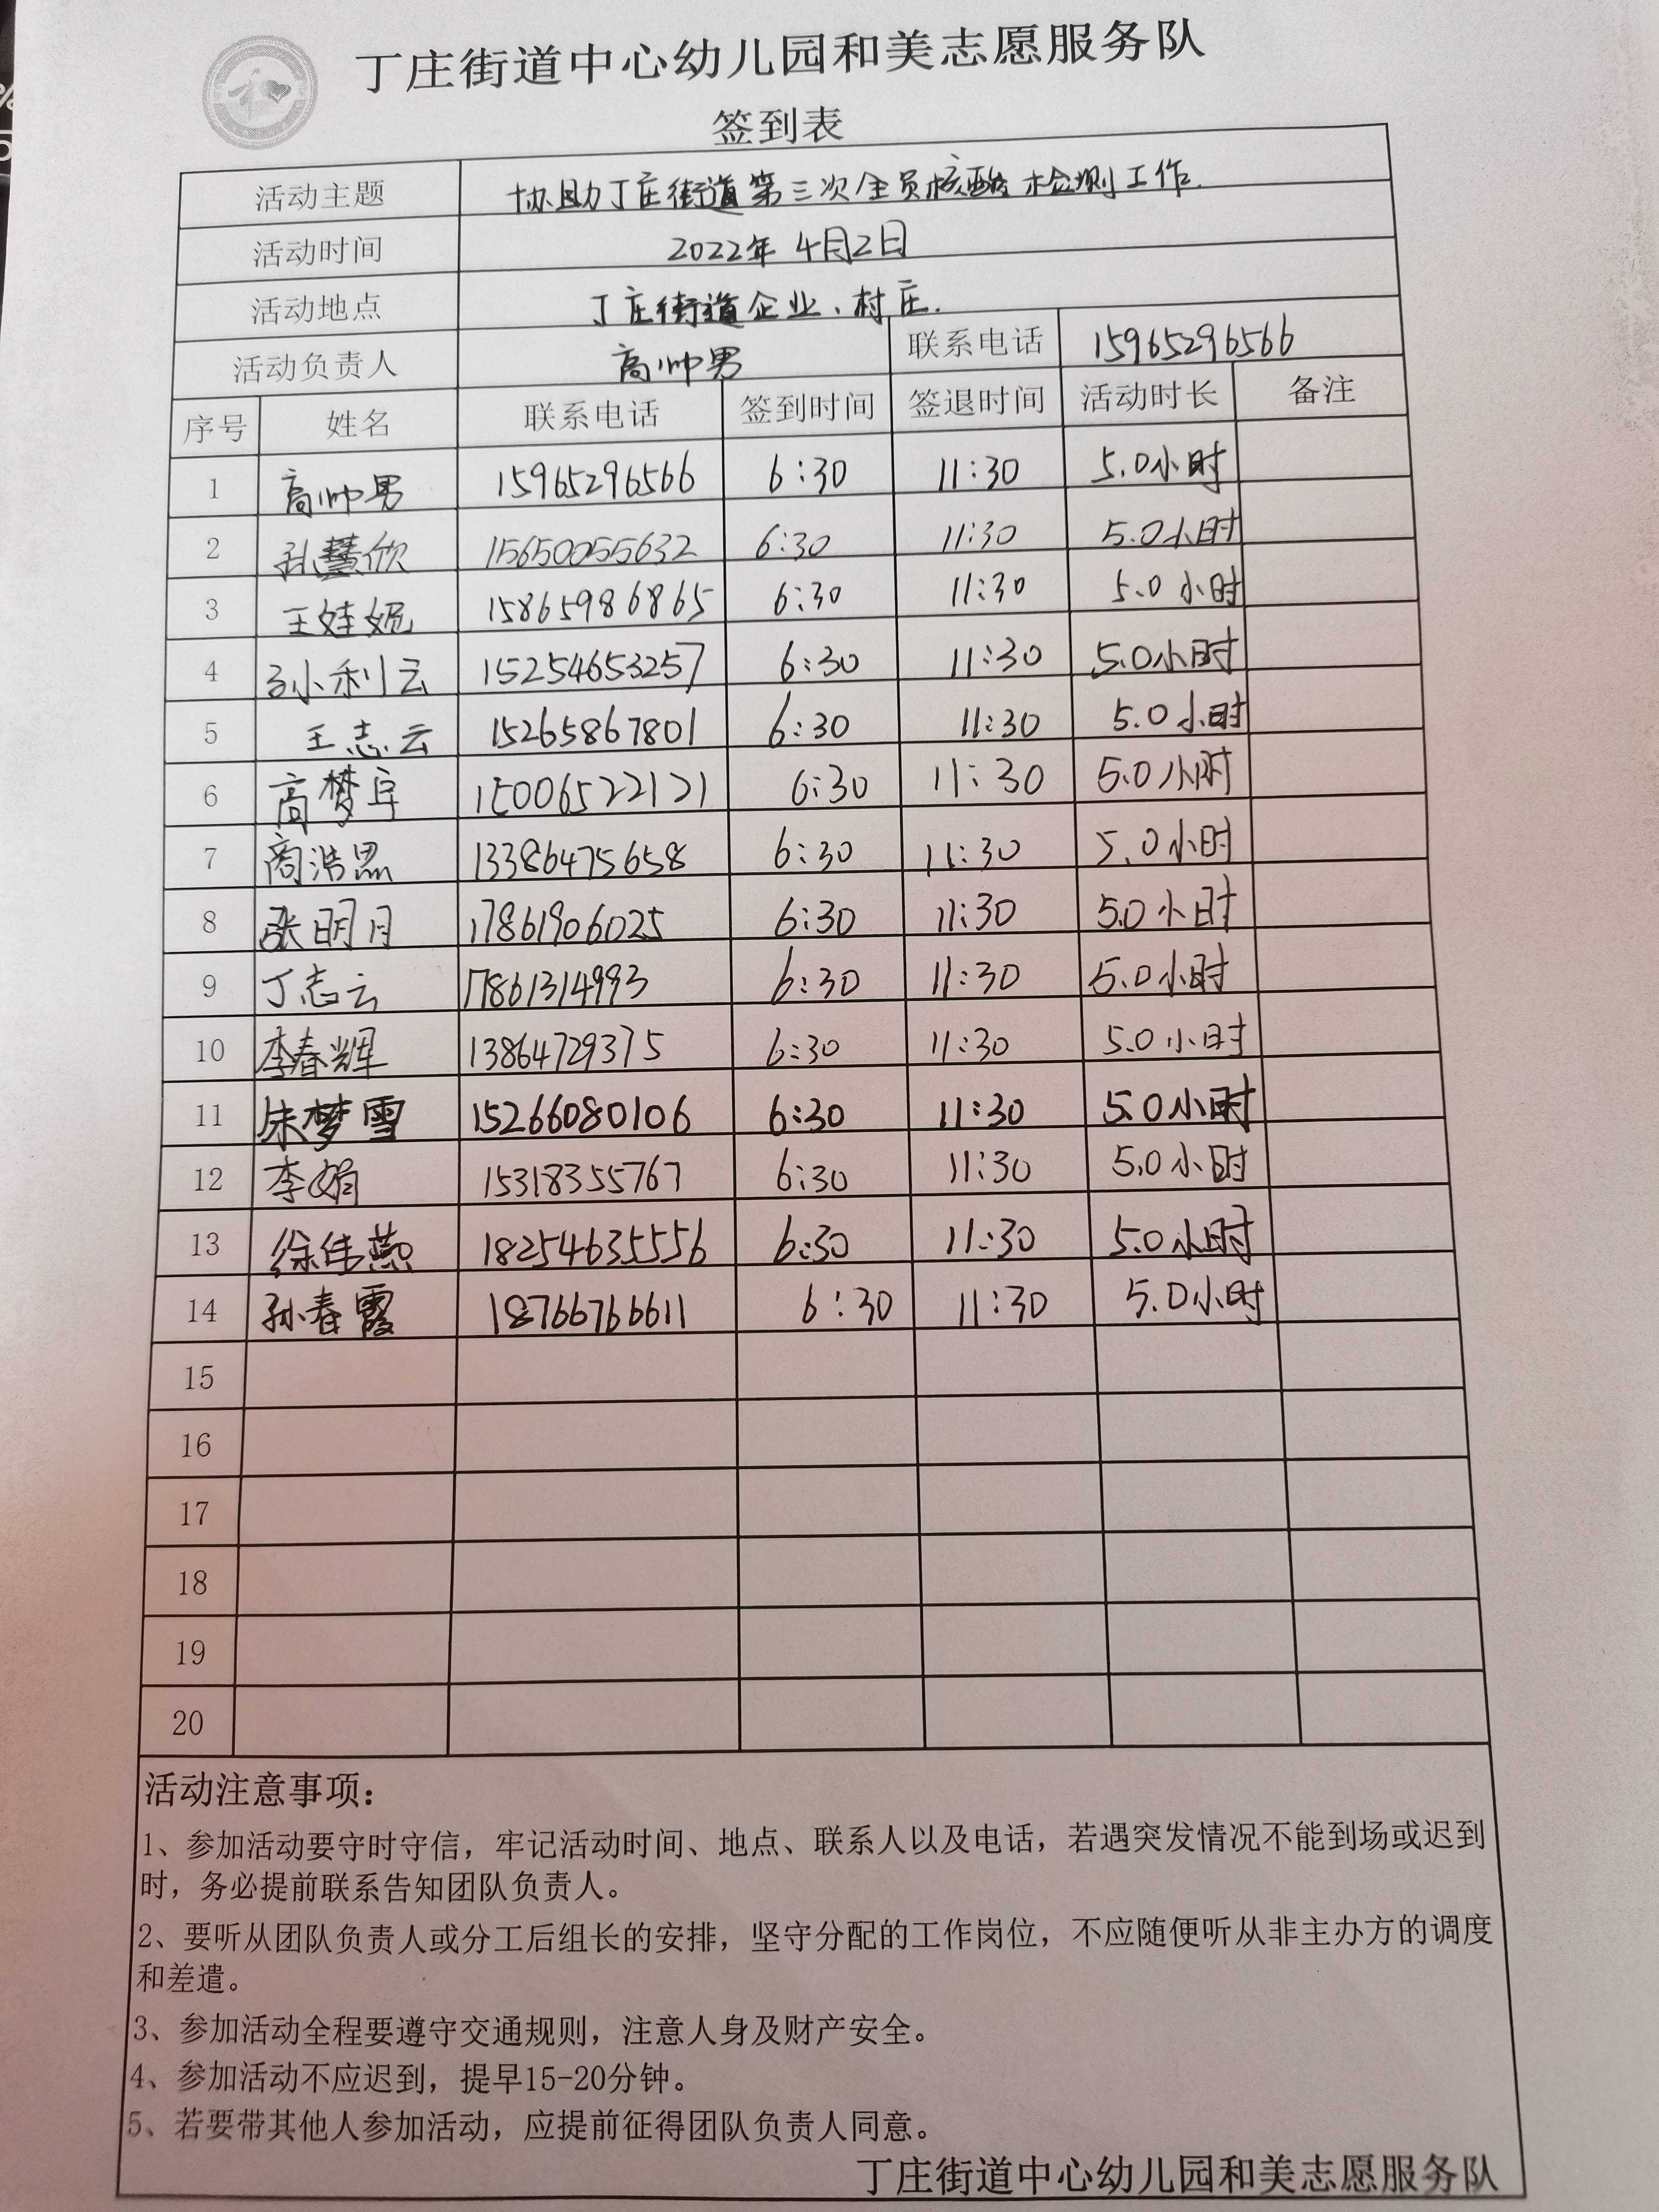 丁庄街道中心幼儿园和美志愿服务队
签到表
活动主题 协助丁庄街道第三次全员核酸检测工作.
活动时间 2022年4月2日
活动地点 丁庄街道企业、村庄.
活动负责人 高帅男 联系电话 15965296566
序号 姓名 联系电话 签到时间 签退时间 活动时长 备注
1 高帅男 15965296566 6:30 11:30 5.0小时
2 孙慧欣 15650055632 6:30 11:30 5.0小时
3 王娃妮 15865986865 6:30 11:30 5.0小时
4 孙利云 15254653257 6:30 11:30 5.0小时
5 王志云 15265867801 6:30 11:30 5.0小时
6 高梦 15006522121 6:30 11:30 5.0小时
7 商浩 13386475658 6:30 11:30 5.0小时
8 张明月 17861906025 6:30 11:30 5.0小时
9 丁志云 17861314993 6:30 11:30 5.0小时
10 李春辉 13864729375 6:30 11:30 5.0小时
11 朱梦雪 15266080106 6:30 11:30 5.0小时
12 李娟 15318355767 6:30 11:30 5.0小时
13 徐伟燕 18254635556 6:30 11:30 5.0小时
14 孙春霞 18766766611 6:30 11:30 5.0小时
15
16
17
18
19
20
活动注意事项：
1、参加活动要守时守信，牢记活动时间、地点、联系人以及电话，若遇突发情况不能到场或迟到
时，务必提前联系告知团队负责人。
2、要听从团队负责人或分工后组长的安排，坚守分配的工作岗位，不应随便听从非主办方的调度
和差遣。
3、参加活动全程要遵守交通规则，注意人身及财产安全。
4、参加活动不应迟到，提早15-20分钟。
5、若要带其他人参加活动，应提前征得团队负责人同意。
丁庄街道中心幼儿园和美志愿服务队